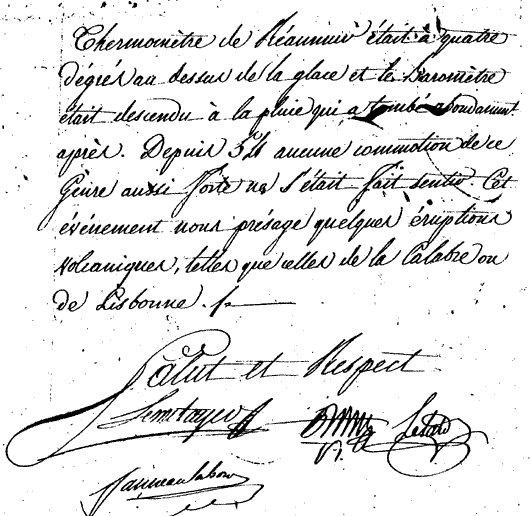 Thermomètre de Réaumur était à quatre
dégrés au dessus de la glace et le Baromètre
était descendu à la pluie qui a tombé abondamment
après. Depuis aucune commotion de ce
Genre aussi forte ne s'était fait sentir. Cet
événement nous présage quelques éruptions
volcaniques, telles que celles de la Calabre ou
de Lisbonne. /.
Salut et Respect